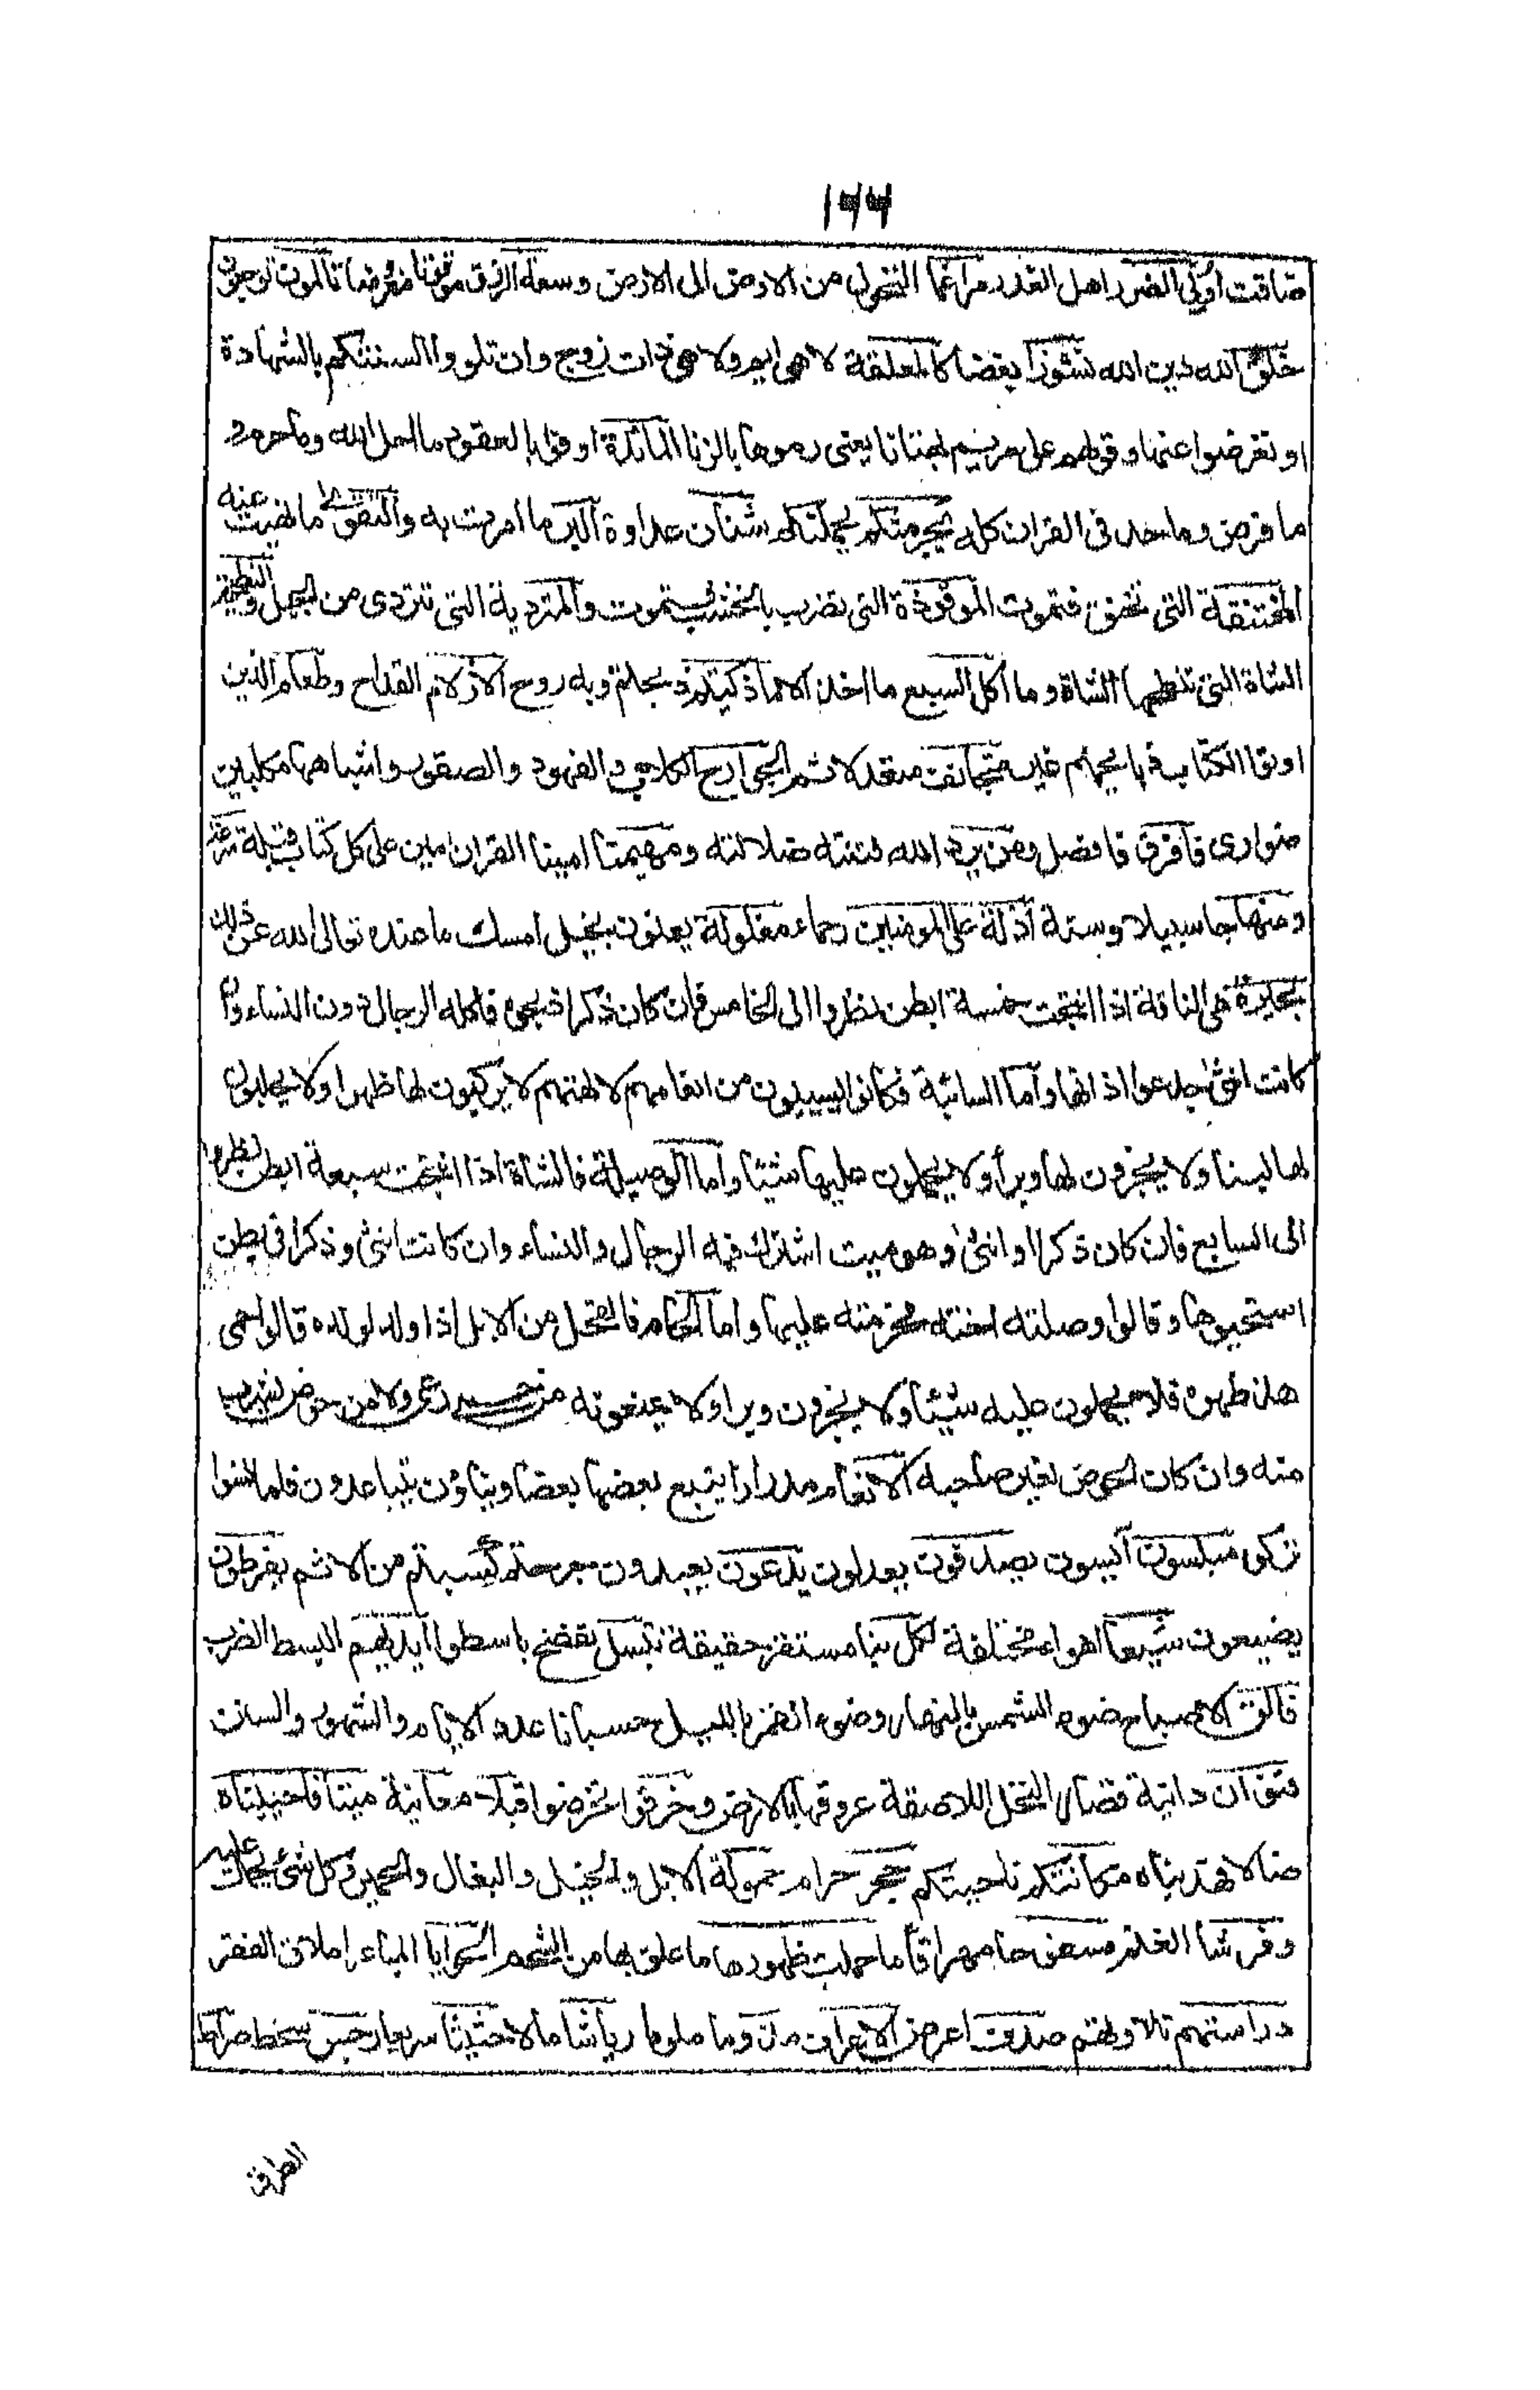 ١٧٧
ضاقت اولي الضرر اهل العذر مراغما التحول من الارض الى الارض وسعة الرزق موقوتا مفروضا تالمون توجعون
خلق الله دين الله نشوزا بغضا كالمعلقة لا هي ايم ولا هي ذات زوج وان تلووا السنتكم بالشهادة
او تعرضوا عنها وقولهم على مريم بهتانا يعني رموها بالزنا المائدة اوفوا بالعقود ما احل الله وما حرم و
ما فرض وما حد في القران كله يجرمنكم يحملنكم شنآن عداوة البر ما امرت به والتقوى ما نهيت عنه
المختنقة التي تخنق فتموت الموقوذة التي تضرب بالخشب فتموت والمتردية التي تتردى من الجبل والنطيحة
الشاة التي تنطحها الشاة وما اكل السبع ما اخذ الا ما ذكيتم ذبحتم وبه روح الازلام القداح وطعام الذين
اوتوا الكتاب ذبايحهم غير متجانف متعد لاثم الجوارح الكلاب والفهود والصقور واشباهها مكلبين
ضوارى فافرق فافصل ومن يرد الله فتنته ضلالته ومهيمنا امينا القران امين على كل كتاب قبله شرعة
ومنهاجا سبيلا وسنة اذلة على المؤمنين رحماء مغلولة يعنون بخيل امسك ما عنده تعالى الله عن ذلك
بحيرة هي الناقة اذا انتجت خمسة ابطن نظروا الى الخامس فان كان ذكرا ذبحوه فاكله الرجال دون النساء وان
كانت انثى جدعوا اذانها واما السائبة فكانوا يسيبون من انعامهم لالهتهم لا يركبون لها ظهرا ولا يحلبون
لها لبنا ولا يجزون لها وبرا ولا يحملون عليها شيئا واما الوصيلة فالشاة اذا انتجت سبعة ابطن نظروا
الى السابع فان كان ذكرا او انثى وهو ميت اشترك فيه الرجال والنساء وان كانت انثى وذكرا في بطن
استحيوها وقالوا وصلته اخته فحرمته عليها واما الحام فالفحل من الابل اذا ولد لولده قالوا حمى
هذا ظهره فلا يحملون عليه شيئا ولا يجزون وبرا ولا يمنعونه من حمى رعى ولا من حوض يشرب
منه وان كان الحوض لغير صاحبه الانعام مدرارا يتبع بعضها بعضا وينأون يتباعدون فلما نسوا
تركوا مبلسون آئسون يصدفون يعدلون يدعون يعبدون جرحتم كسبتم من الاثم يفرطون
يضيعون شيعا اهواء مختلفة لكل نبا مستقر حقيقة تبسل تفضح باسطوا ايديهم البسط الضرب
فالق الاصباح ضوء الشمس بالنهار وضوء القمر بالليل حسبانا عدد الايام والشهور والسنن
قنوان دانية قصار النخل اللاصقة عروقها بالارض وخرقوا تخرصوا قبلا معاينة ميتا فاحييناه
ضالا فهديناه مكانتكم ناحيتكم حجر حرام حمولة الابل والخيل والبغال والحمير وكل شئ يحمل عليه
وفرشا الغنم مسفوحا مهراقا ما حملت ظهورها ما علق بها من الشحم الحوايا المباعر املاق الفقر
دراستهم تلاوتهم صدف اعرض الاعراف مذؤما ملوما رياشا مالا حثيثا سريعا رجس سخط صراط
الطريق